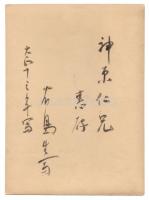 神原仁兄
恵存
有島生馬
大正十三年写